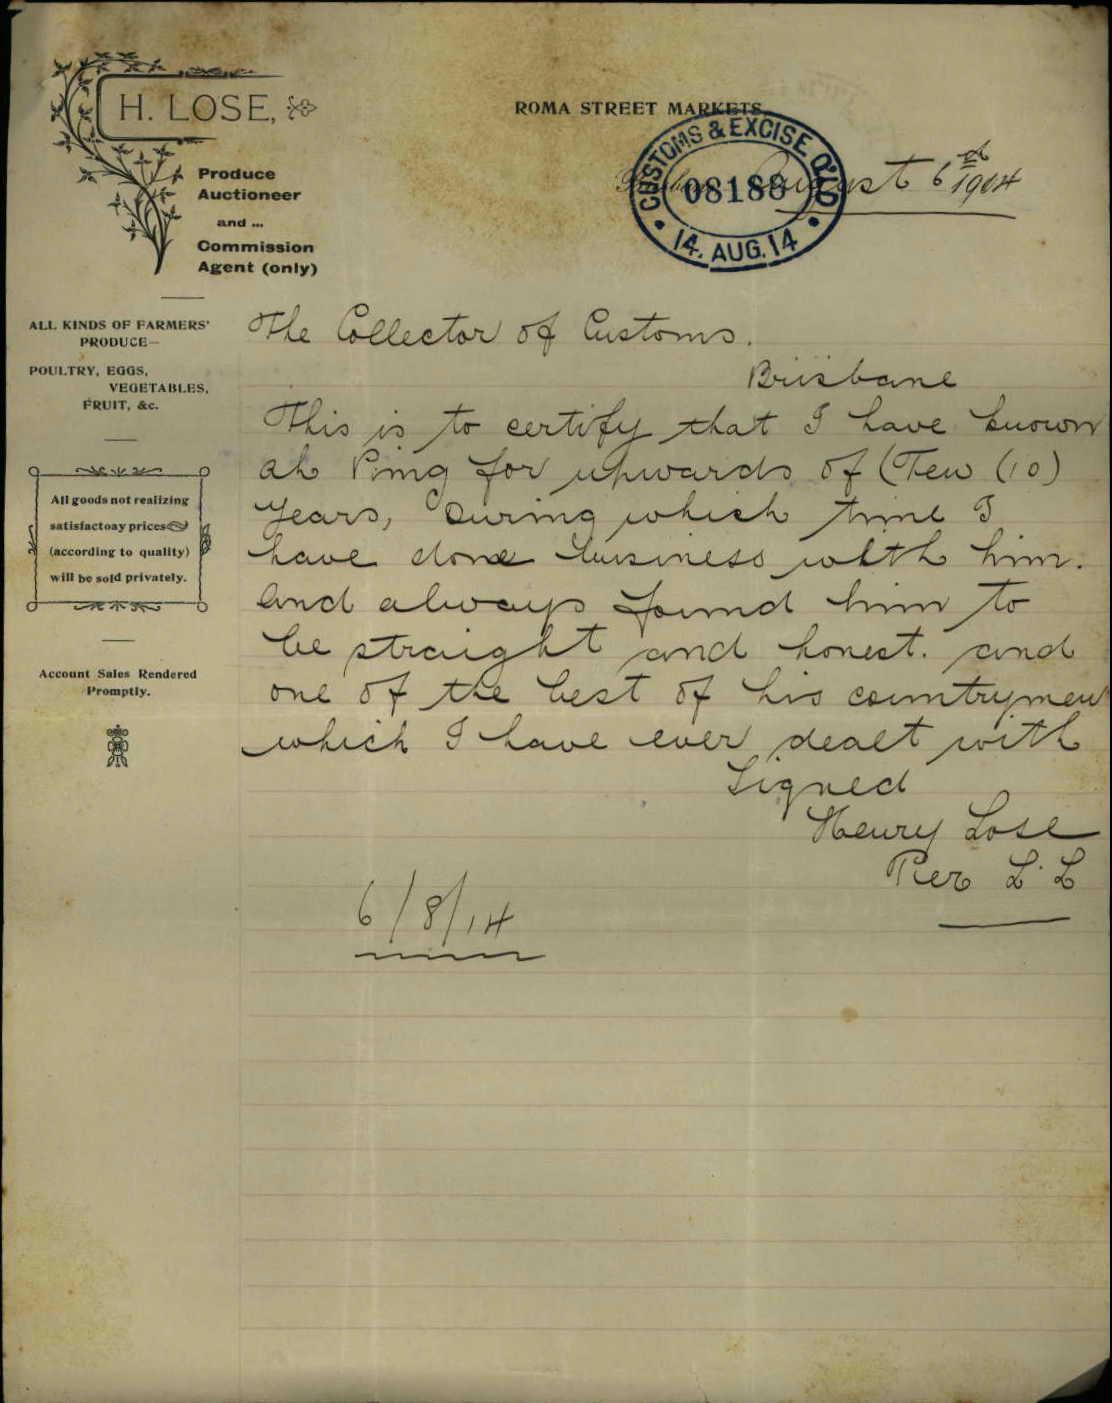 H. LOSE,
Produce
Auctioneer
and ...
Commission
Agent (only)
ROMA STREET MARKETS
August 6th 1914
CUSTOMS & EXCISE Q'LD
08188
14. AUG. 14
ALL KINDS OF FARMERS'
PRODUCE—
POULTRY, EGGS,
VEGETABLES,
FRUIT, &c.
All goods not realizing
satisfactoay prices
(according to quality)
will be sold privately.
Account Sales Rendered
Promptly.
The Collector of Customs.
Brisbane
This is to certify that I have known
ah Ping for upwards of (Ten (10)
Years, During which time I
have done business with him.
and always found him to
be straight and honest. and
one of the best of his countrymen
which I have ever dealt with
Signed
Henry Lose
Per L. L
6/8/14